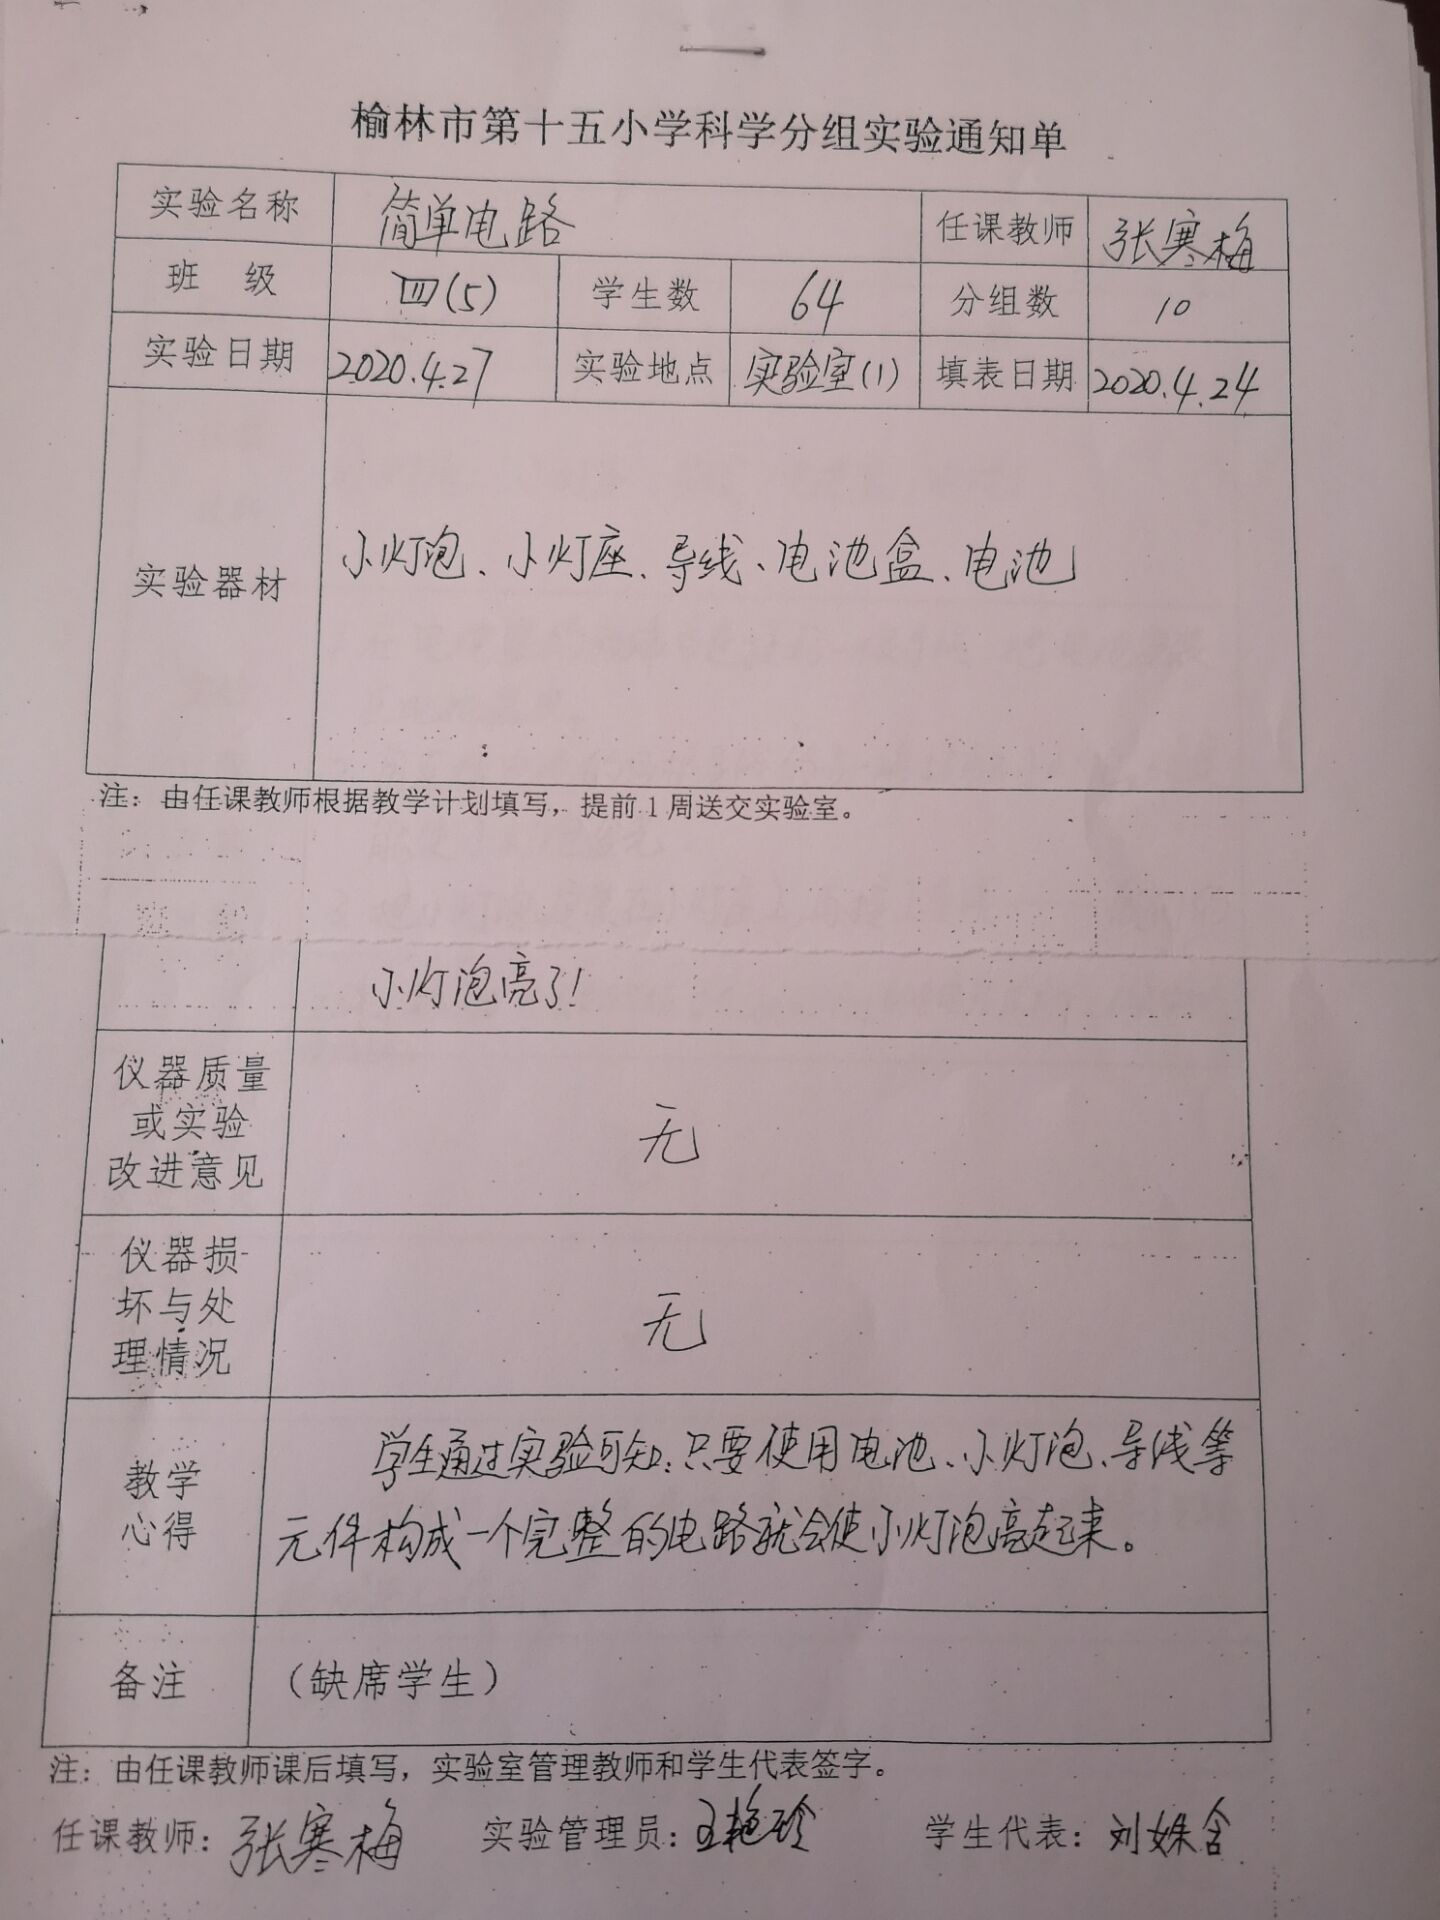 榆林市第十五小学科学分组实验通知单
实验名称 简单电路 任课教师 张寒梅
班 级 四(5) 学生数 64 分组数 10
实验日期 2020.4.27 实验地点 实验室(1) 填表日期 2020.4.24
实验器材 小灯泡、小灯座、导线、电池盒、电池
注：由任课教师根据教学计划填写，提前1周送交实验室。
小灯泡亮了!
仪器质量
或实验
改进意见
无
仪器损
坏与处
理情况
无
教学
心得
学生通过实验可知:只要使用电池、小灯泡、导线等
元件构成一个完整的电路就会使小灯泡亮起来。
备注 （缺席学生）
注：由任课教师课后填写，实验室管理教师和学生代表签字。
任课教师：张寒梅 实验管理员：王艳玲 学生代表：刘姝含